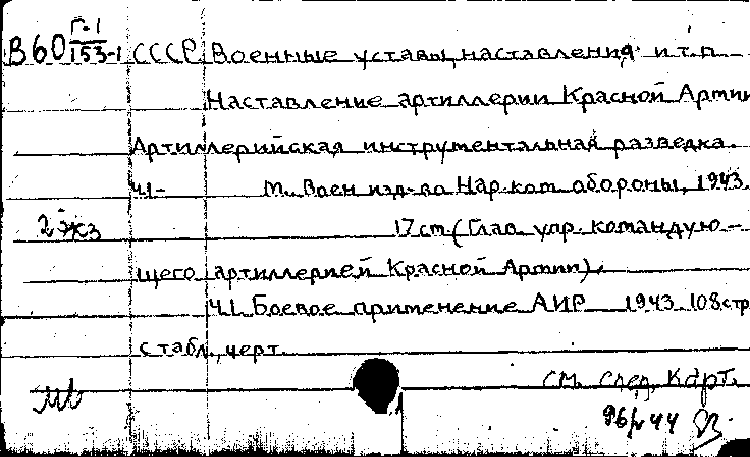 Г-1
В60 153-1 СССР Военные уставы, наставления и т.п
Наставление артиллерии Красной Армии
Артиллерийская инструментальная разведка.
Ч.1- М. Воен изд-во Нар.ком обороны, 1943.
2 экз 17 см (Глав. упр. командую-
щего артиллерией Красной Армии).
Ч.1. Боевое применение АИР 1943. 108 стр
с табл., черт.
см. след. карт.